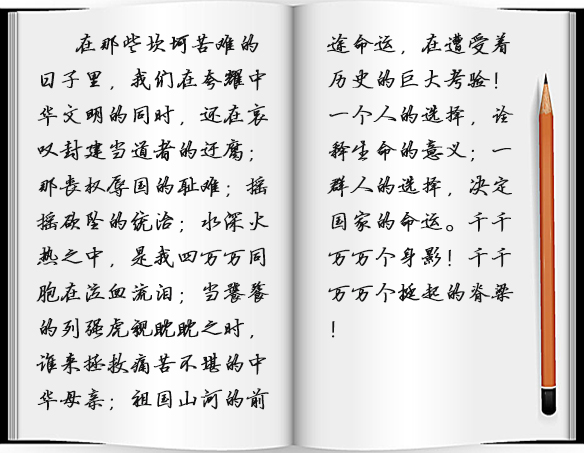 在那些坎坷苦难的
日子里，我们在夸耀中
华文明的同时，还在哀
叹封建当道者的迂腐；
那丧权辱国的耻难；摇
摇欲坠的统治；水深火
热之中，是我四万万同
胞在泣血流泪；当饕餮
的列强虎视眈眈之时，
谁来拯救痛苦不堪的中
华母亲；祖国山河的前
途命运，在遭受着
历史的巨大考验！
一个人的选择，诠
释生命的意义；一
群人的选择，决定
国家的命运。千千
万万个身影！千千
万万个挺起的脊梁
！